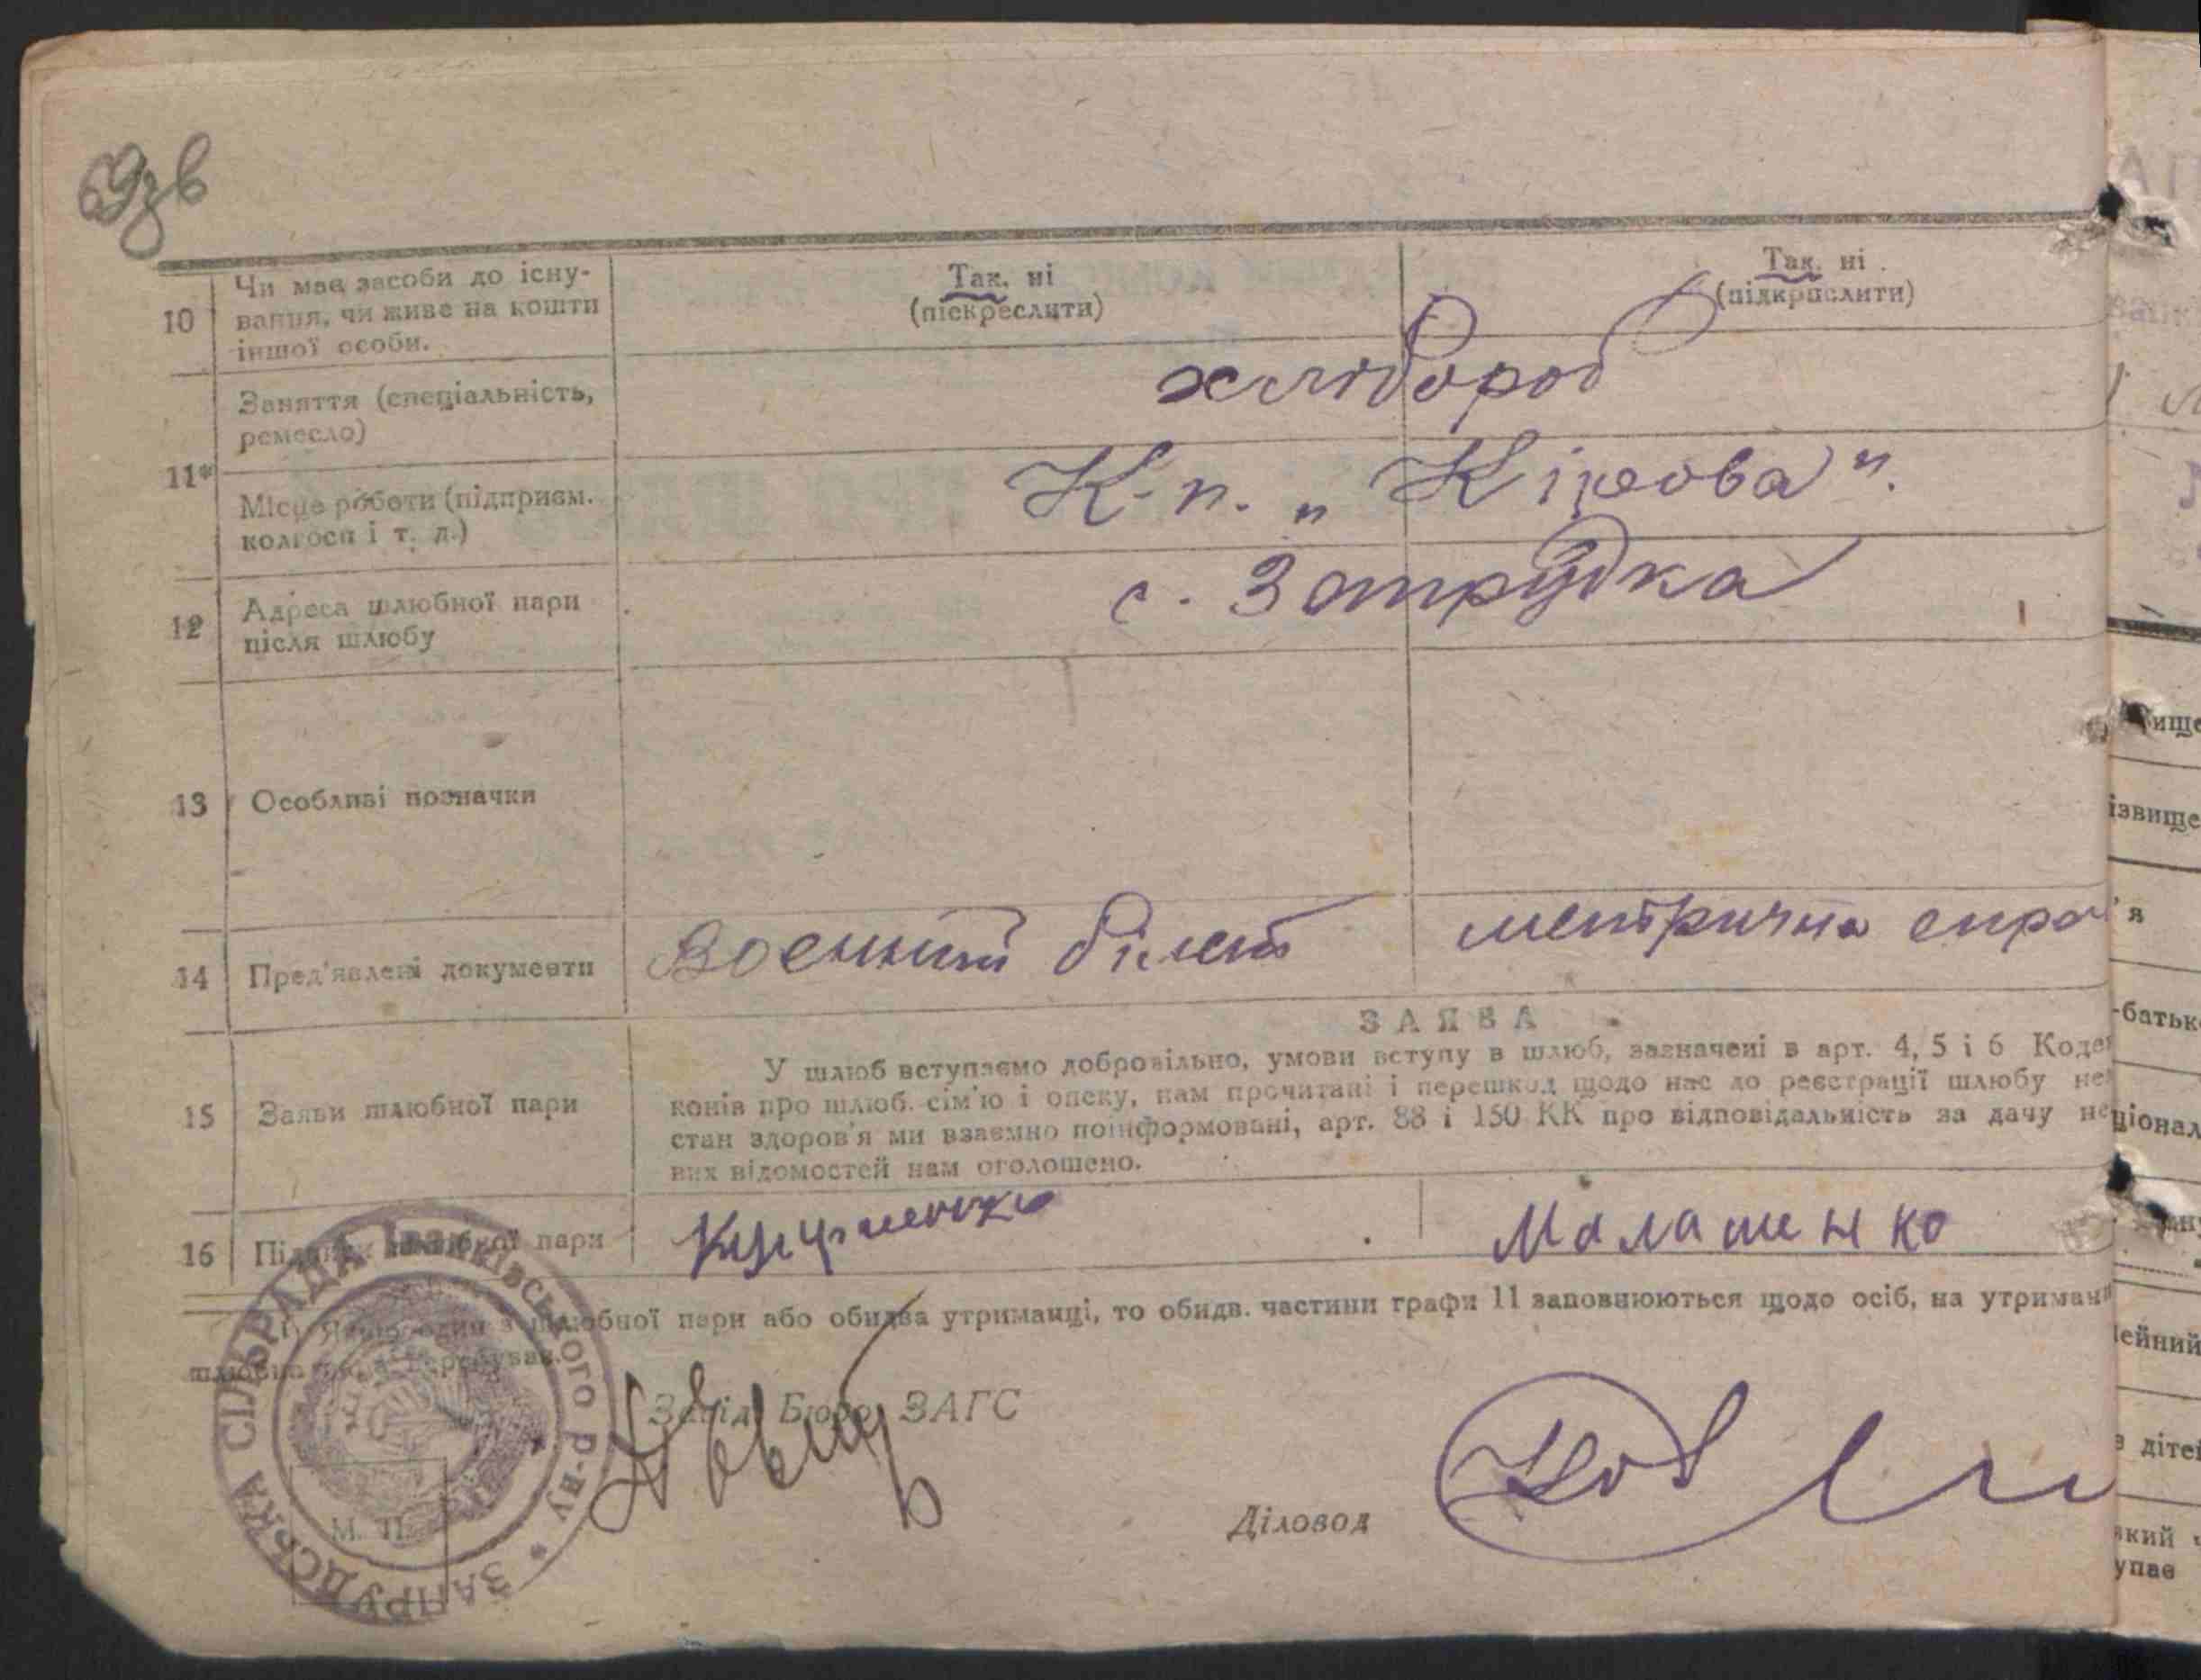 69зв
10 Чи має засоби до існу-
вання, чи живе на кошти
іншої особи.
Так, ні
(піскреслити)
Так, ні
(підкрислити)
11*
Заняття (спеціальність,
ремесло)
хлібороб
Місце роботи (підприєм.
колгосп і т. д.)
К-п. „Кірова".
12 Адреса шлюбної пари
після шлюбу
с. Запрудка
13 Особливі позначки
14 Пред'явлені документи
Воєнний білет
метрична спра
15 Заяви шлюбної пари
ЗАЯВА
У шлюб вступаємо добровільно, умови вступу в шлюб, зазначені в арт. 4, 5 і 6 Коде
конів про шлюб. сім'ю і опеку, нам прочитані і перешкод щодо нас до реєстрації шлюбу не
стан здоров'я ми взаємно поінформовані, арт. 88 і 150 КК про відповідальність за дачу не
вих відомостей нам оголошено.
16 Підпис шлюбної пари
Маламенко
1) Якщо один з шлюбної пари або обидва утриманці, то обидв. частини графи 11 заповнюються щодо осіб, на утриман
шлюбна пара перебуває.
Завід. Бюро ЗАГС
Діловод
М. П.
ЗАПРУДСЬКА СІЛЬРАДА Іванківського р-ну *
ище
ізвище
'я
-батьк
ціонал
ейний
дітей
який
упає